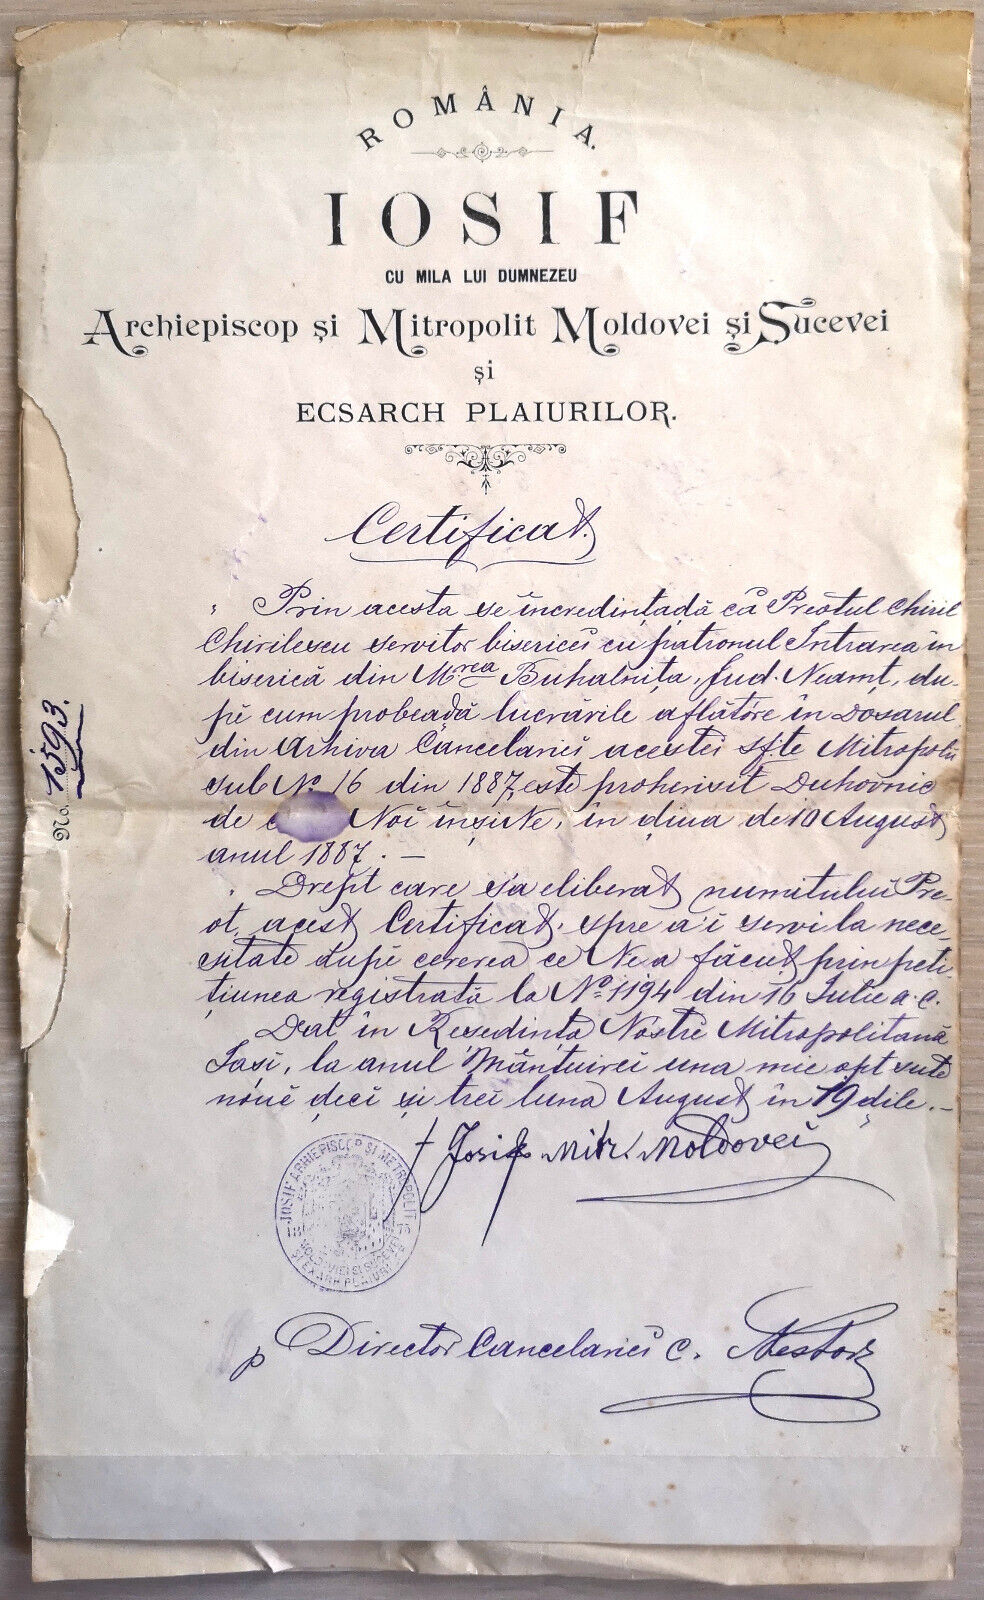 ROMÂNIA.
IOSIF
CU MILA LUI DUMNEZEU
Archiepiscop și Mitropolit Moldovei și Sucevei
și
ECSARCH PLAIURILOR.
Certificat.
Prin acesta se încredințadă că Preotul Chiril
Chirilescu servitor bisericei cu patronul Intrarea în
biserică din Mrea Buhalnița, Jud. Neamț, du-
pĕ cum probeadă lucrările aflătore în Dosarul
din Arhiva Cancelariei acestei sfte Mitropolii
sub No 16 din 1887, este prohirisit Duhovnic
de Noi înșine, în diua de 10 August
anul 1887. —
Drept care s'a eliberat numitului Pre-
ot, acest Certificat, spre a'i servi la nece-
sitate dupĕ cererea ce Ne a făcut prin peti-
țiunea registrată la No 1194 din 16 Iulie a. c.
Dat în Resedința Nostră Mitropolitană
Iași, la anul Mântuirei una mie opt sute
nouĕ deci și trei luna August în 19 dile. —
† Iosif Mitr. Moldovei
IOSIF ARHIEPISCOP ȘI METROPOLIT
MOLDAVIEI ȘI SUCEVEI
ȘI EXARH PLAIURI
p Director Cancelariei C. Nestor
No. 1593.